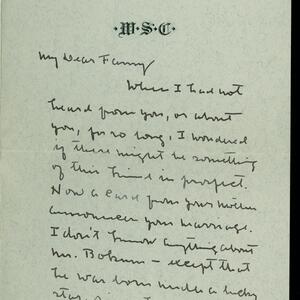 W·S·C·
My Dear Fanny
When I had not
heard from you, or about
you, for so long, I wondered
if there might be something
of this kind in prospect.
Now a card from your mother
announces your marriage.
I don't know anything about
Mr. – except that
he was born under a lucky